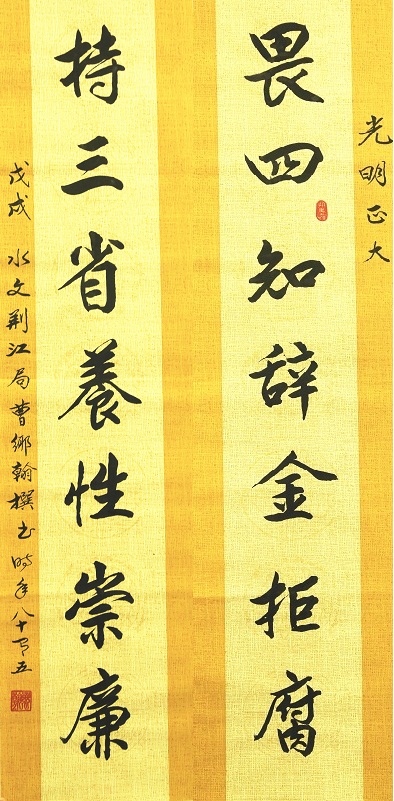 光明正大
畏四知辞金拒腐
持三省養性崇廉
戊戌 水文荆江局曹卿翰撰书 时年八十有五